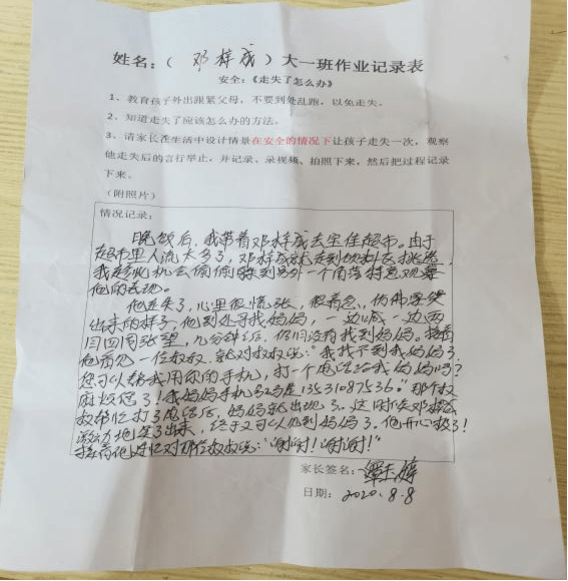 姓名：（邓梓成）大一班作业记录表
安全：《走失了怎么办》
1、教育孩子外出跟紧父母，不要到处乱跑，以免走失。
2、知道走失了应该怎么办的方法。
3、请家长在生活中设计情景在安全的情况下让孩子走失一次，观察
他走失后的言行举止，并记录、录视频、拍照下来，然后把过程记录
下来。
（附照片）
情况记录：
晚饭后，我带着邓梓成去宝佳超市。由于
超市里人流太多了，邓梓成就走到饮料区挑选，
我趁此机会偷偷躲到另外一个角落特意观察
他的表现。
他走失了，心里很慌张，很着急，仿佛要哭
出来的样子，他到处寻找妈妈，一边喊一边四
目四周张望，几分钟后，仍旧没有找到妈妈。接着
他看见一位叔叔，就对叔叔说："我找不到我妈妈了，
您可以帮我用你的手机，打一个电话给我妈妈吗？
麻烦您了！我妈妈手机号码是13531087536。"那个叔
叔帮忙打了电话后，妈妈就出现了。这时候邓梓成
激动地笑了出来，终于又可以见到妈妈了。他开心极了！
接着他连忙对那位叔叔说："谢谢！谢谢！"
家长签名：谭玉婷
日期：2020.8.8